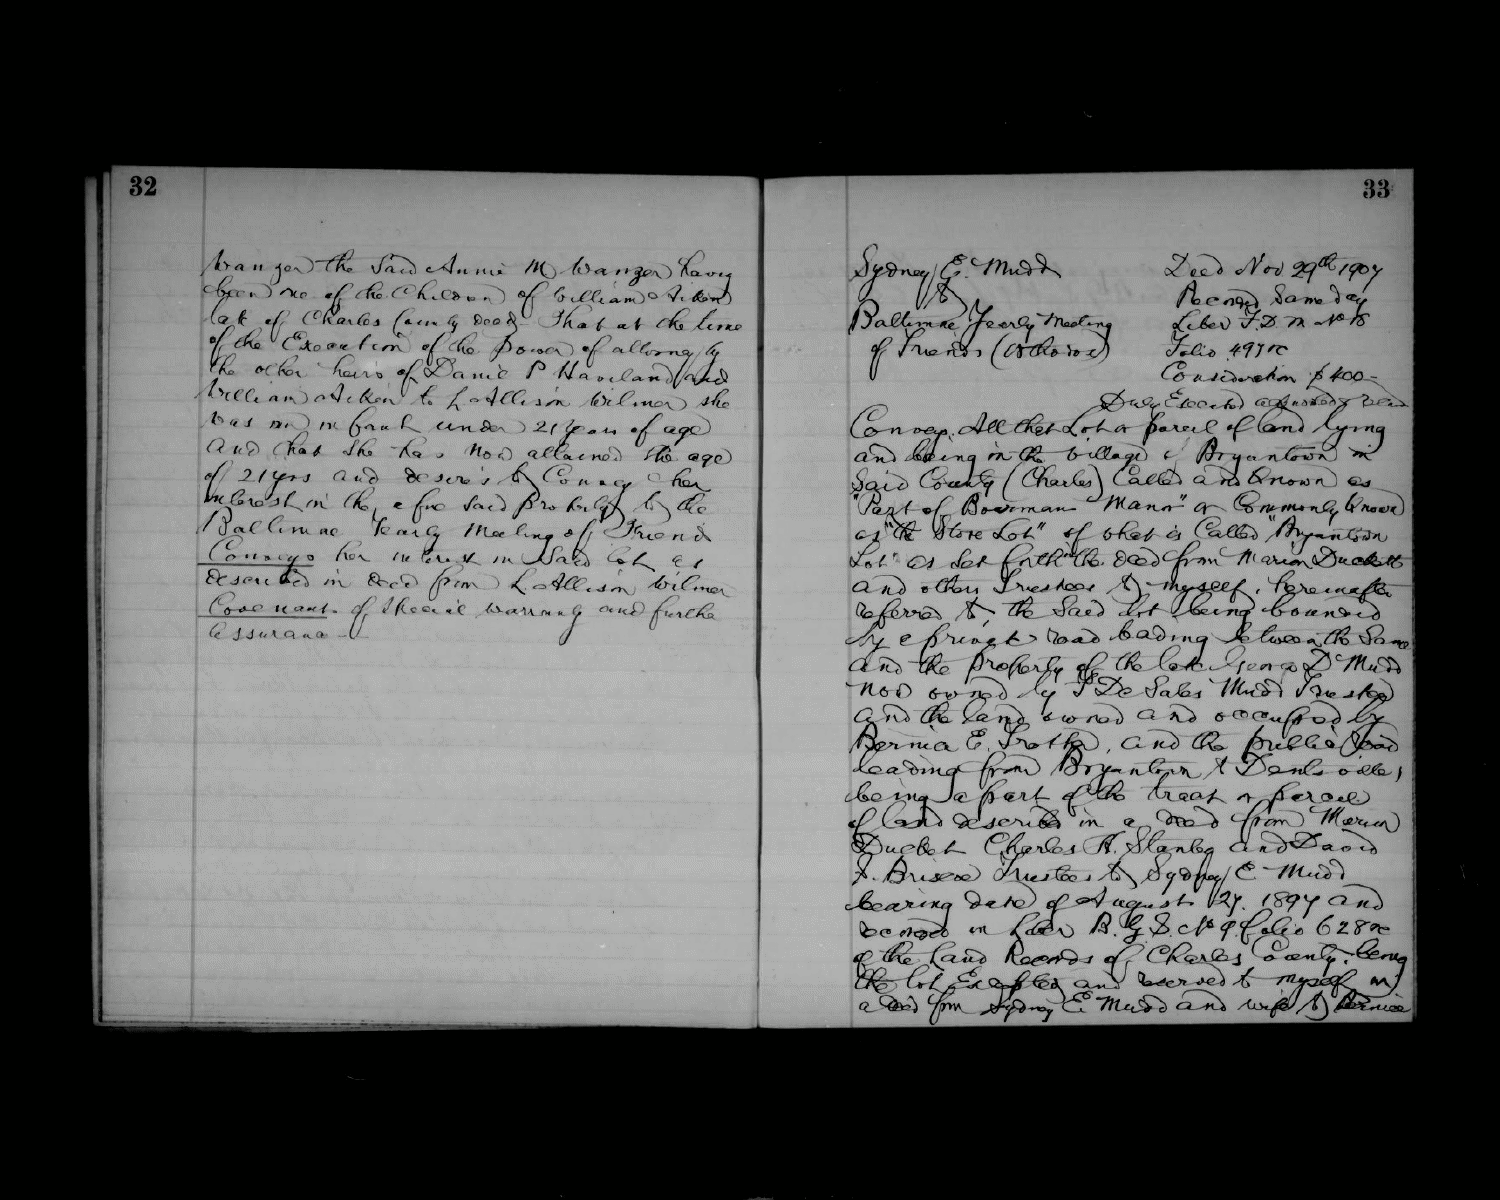 32
Wanzer the Said Annie M Wanzer having
been one of the Children of William Aiken
late of Charles County Decd. That at the time
of the Execution of the power of attorney by
the other heirs of Daniel P Haviland and
William Aiken to L Allison Wilmer she
was an infant under 21 years of age
and that she has now attained the age
of 21 yrs and desires to Convey her
interest in the afore said property to the
Baltimore Yearly Meeting of Friends
Conveys her interest in said lot as
described in deed from L Allison Wilmer
Covenants of special warranty and further
assurance
33
Sydney E. Mudd
to
Baltimore Yearly Meeting
of Friends (Orthodox)
Deed Nov 29th 1907
Recorded Same day
Liber F.D.M No 18
Folio 497 &c
Consideration $400-
Duly Executed
Conveys. All that Lot or parcel of land lying
and being in the village of Bryantown in
Said County (Charles) Called and Known as
"Part of Boarman's Manor" or Commonly Known
as "the Store Lot" of what is Called "Bryantown
Lot" as set forth in the deed from Marion Duckett
and others Trustees to myself, hereinafter
referred to, the Said lot being bounded
by a private road leading between the Same
and the property of the late George D Mudd
now owned by F De Sales Mudd Trustee
and the land owned and occupied by
E. , and the public road
leading from Bryantown to Dentsville,
being a part of the tract or parcel
of land described in a deed from Marion
Duckett Charles H. Stanley and David
Briscoe Trustees to Sydney E Mudd
bearing date of August 27. 1897 and
recorded in Liber B.G.S. No 9 folio 628 &c
of the Land Records of Charles County. being
the lot Excepted and reserved to myself in
a deed from Sydney E Mudd and wife to